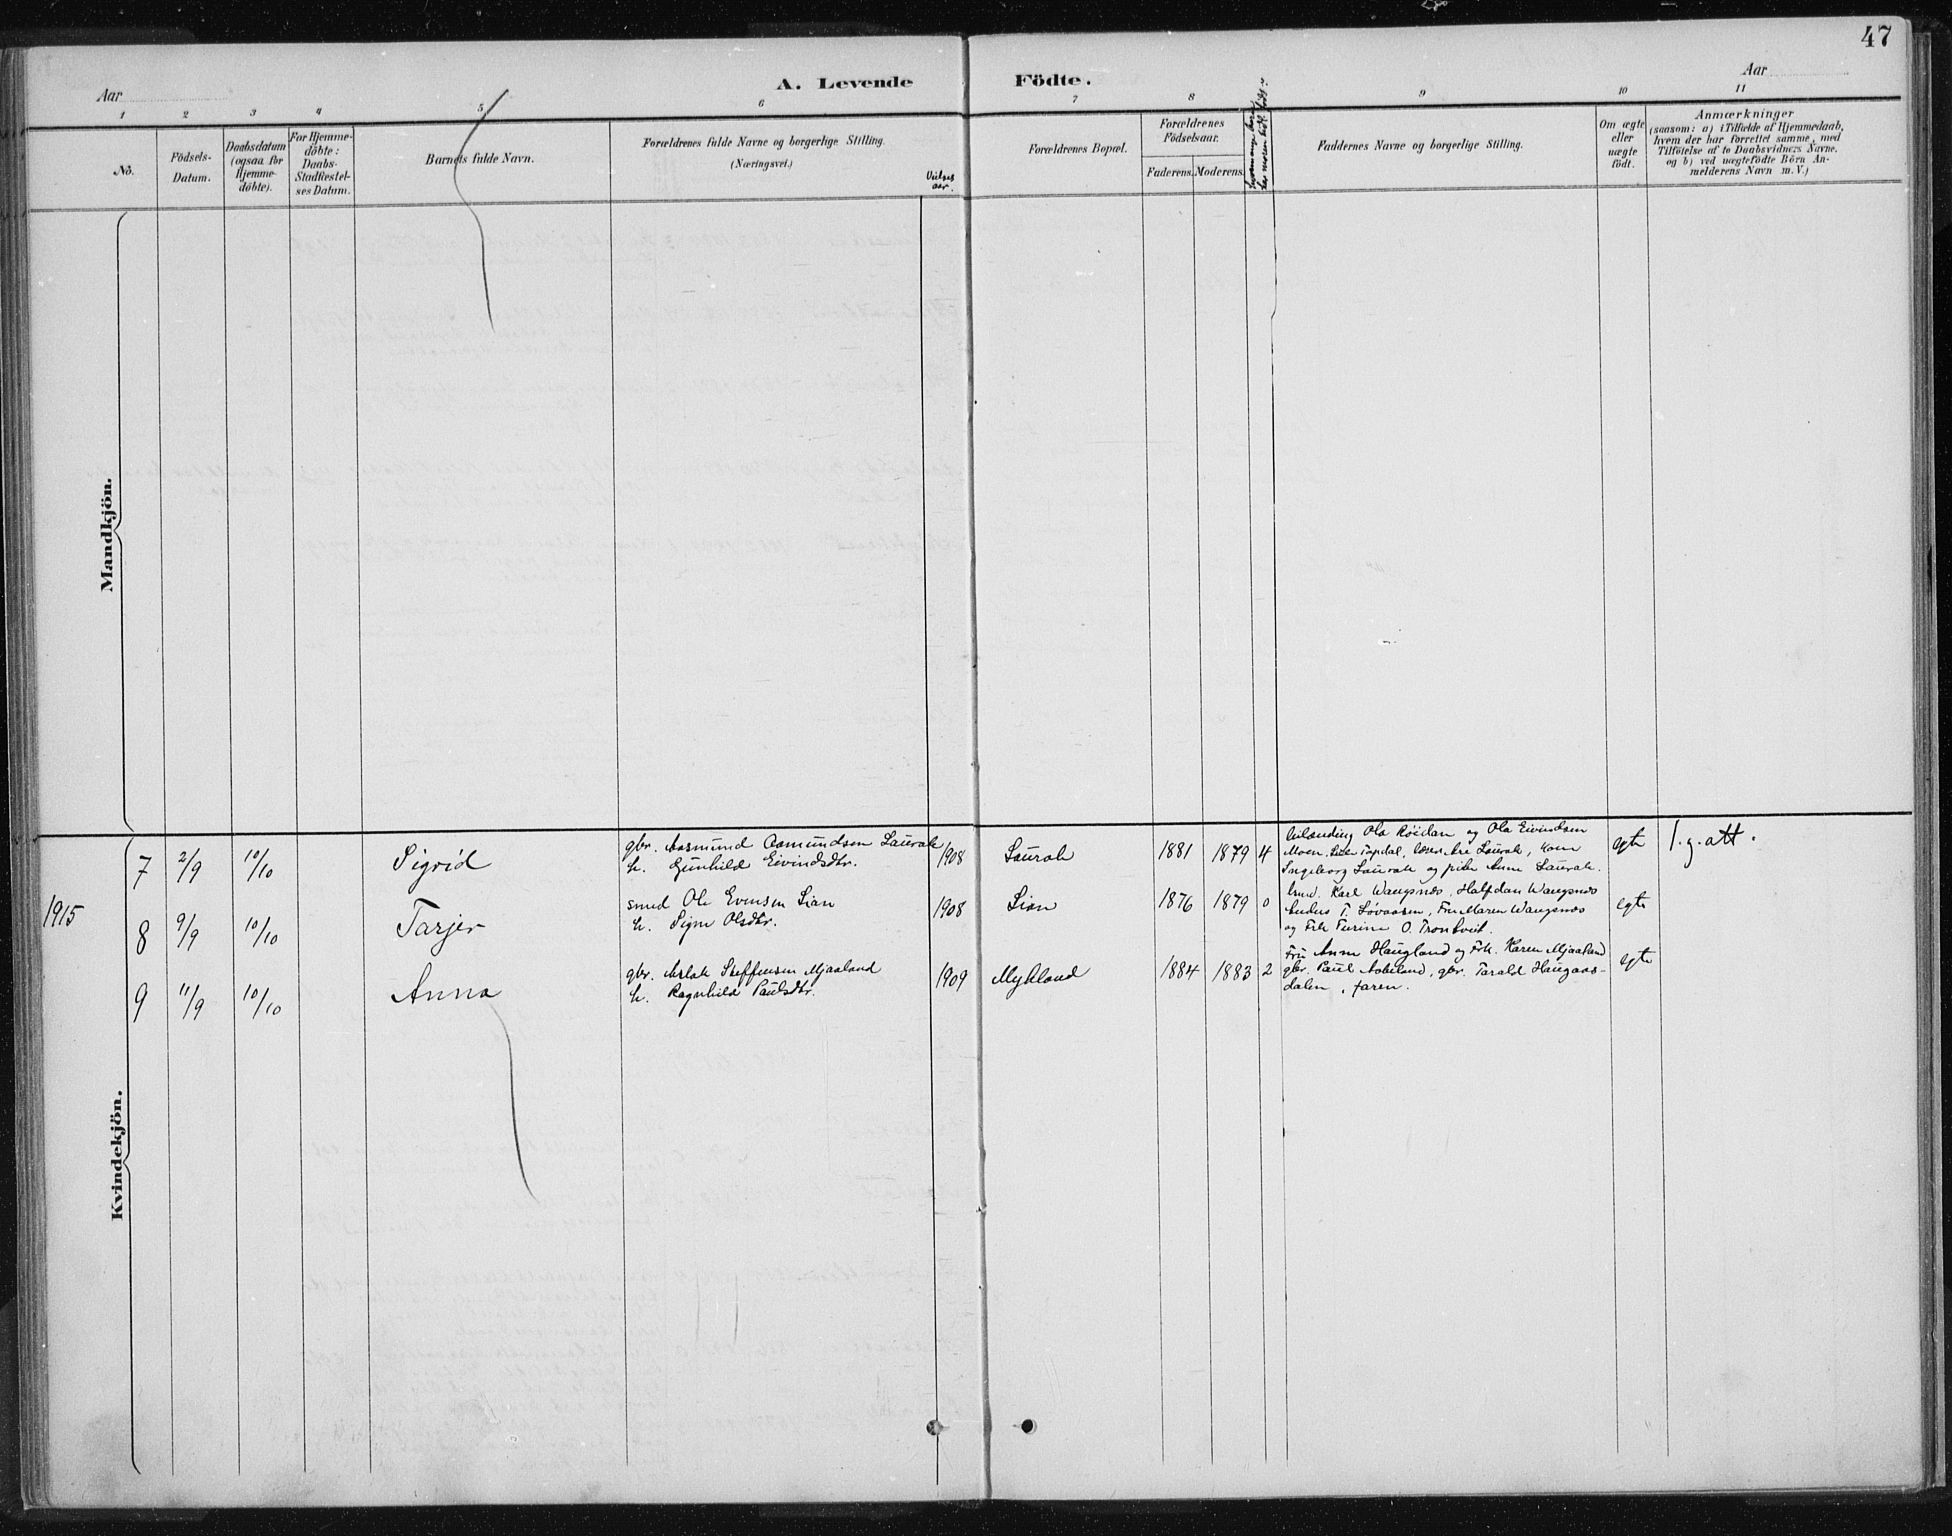 47
A. Levende Födte.
Aar
Aar
1 2 3 4 5 6 7 8 9 10 11
No.
Födsels-
Datum.
Daabsdatum
(ogsaa for
Hjemme-
döbte).
For Hjemme-
döbte:
Daabs-
Stadfæstel-
ses Datum.
Barnets fulde Navn.
Forældrenes fulde Navne og borgerlige Stilling.
(Næringsvei.)
Vielses
aar.
Forældrenes Bopæl.
Forældrenes
Födselsaar.
Faderens. Moderens.
Faddernes Navne og borgerlige Stilling.
Om ægte
eller
uægte
födt.
Anmærkninger
(saasom: a) i Tilfælde af Hjemmedaab,
hvem der har forrettet samme, med
Tilföielse af to Daabsvidners Navne,
og b) ved uægtefödte Börn An-
melderens Navn m.V.)
Mandkjön.
Kvindekjön.
1915
7 2/9 10/10 Sigrid
gbr. Aasmund Aamundsen Laurak
h. Gunhild Eivindsdtr.
1908 Laurak 1881 1879 4
Ola Röidan og Ola Eivindsen
Moen, Topdal, Are Laurak, kone
Ingeborg Laurak og pike Anne Laurak.
egte
l.g.att.
8 9/9 10/10 Tarjer
smed Ole Evensen Lian
h. Signe Olsdtr.
1908 Lian 1876 1879 0
Karl Wangsnæs, Halfdan Wangsnæs
Anders T. Løvaasen, Fru Maren Wangsnæs
og Frk Turine O. Trontveit.
egte
9 11/9 10/10 Anna
gbr. Aslak Steffensen Mjaaland
h. Ragnhild Paulsdtr.
1909 Mykland 1884 1883 2
Fru Anne Haugland og Frk. Karen Mjaaland
gbr. Paul Aabeland, gbr. Tarald Haugaas-
dalen, faren.
egte